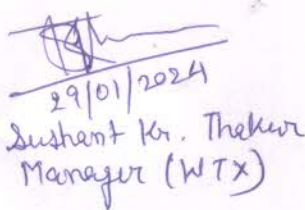 29/01/2024
Sushant Kr. Thakur
Manager (WTX)